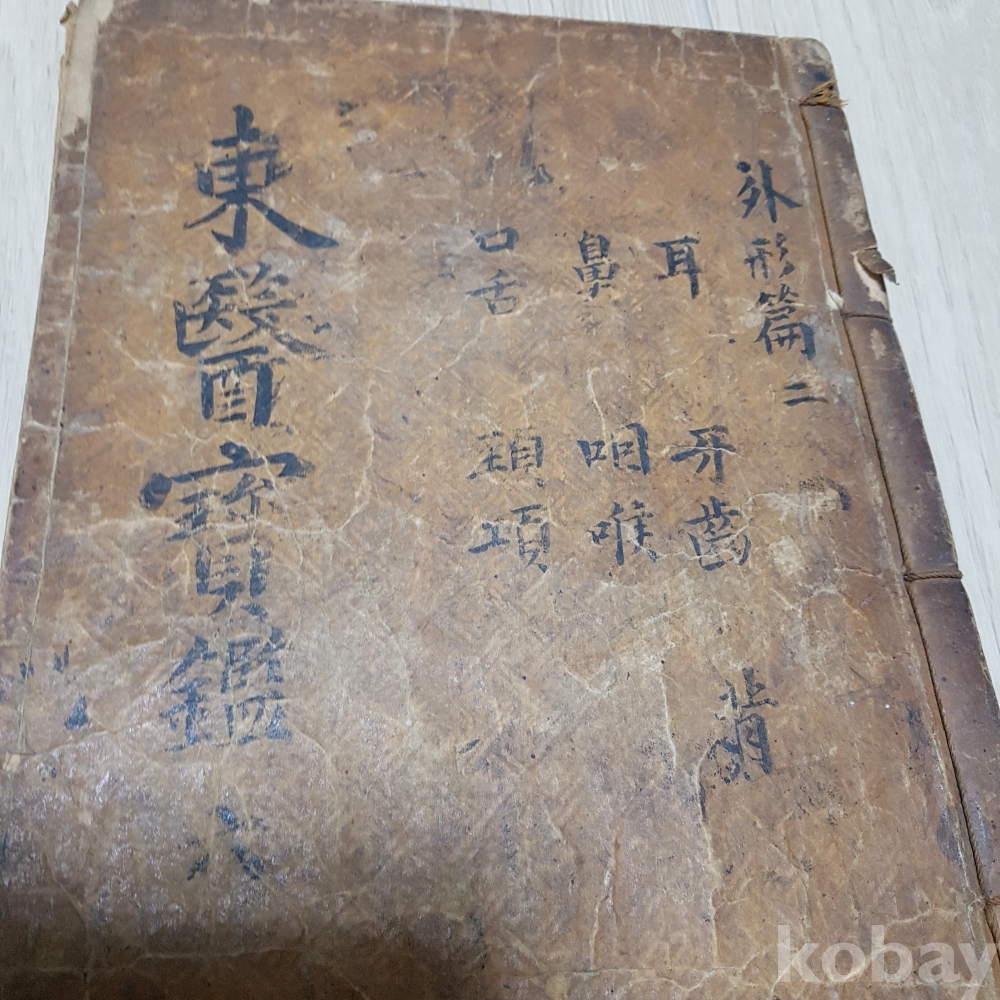 外形篇 二
耳 牙齒 背
鼻 咽喉
口舌 頸項
東醫寶鑑 八
kobay